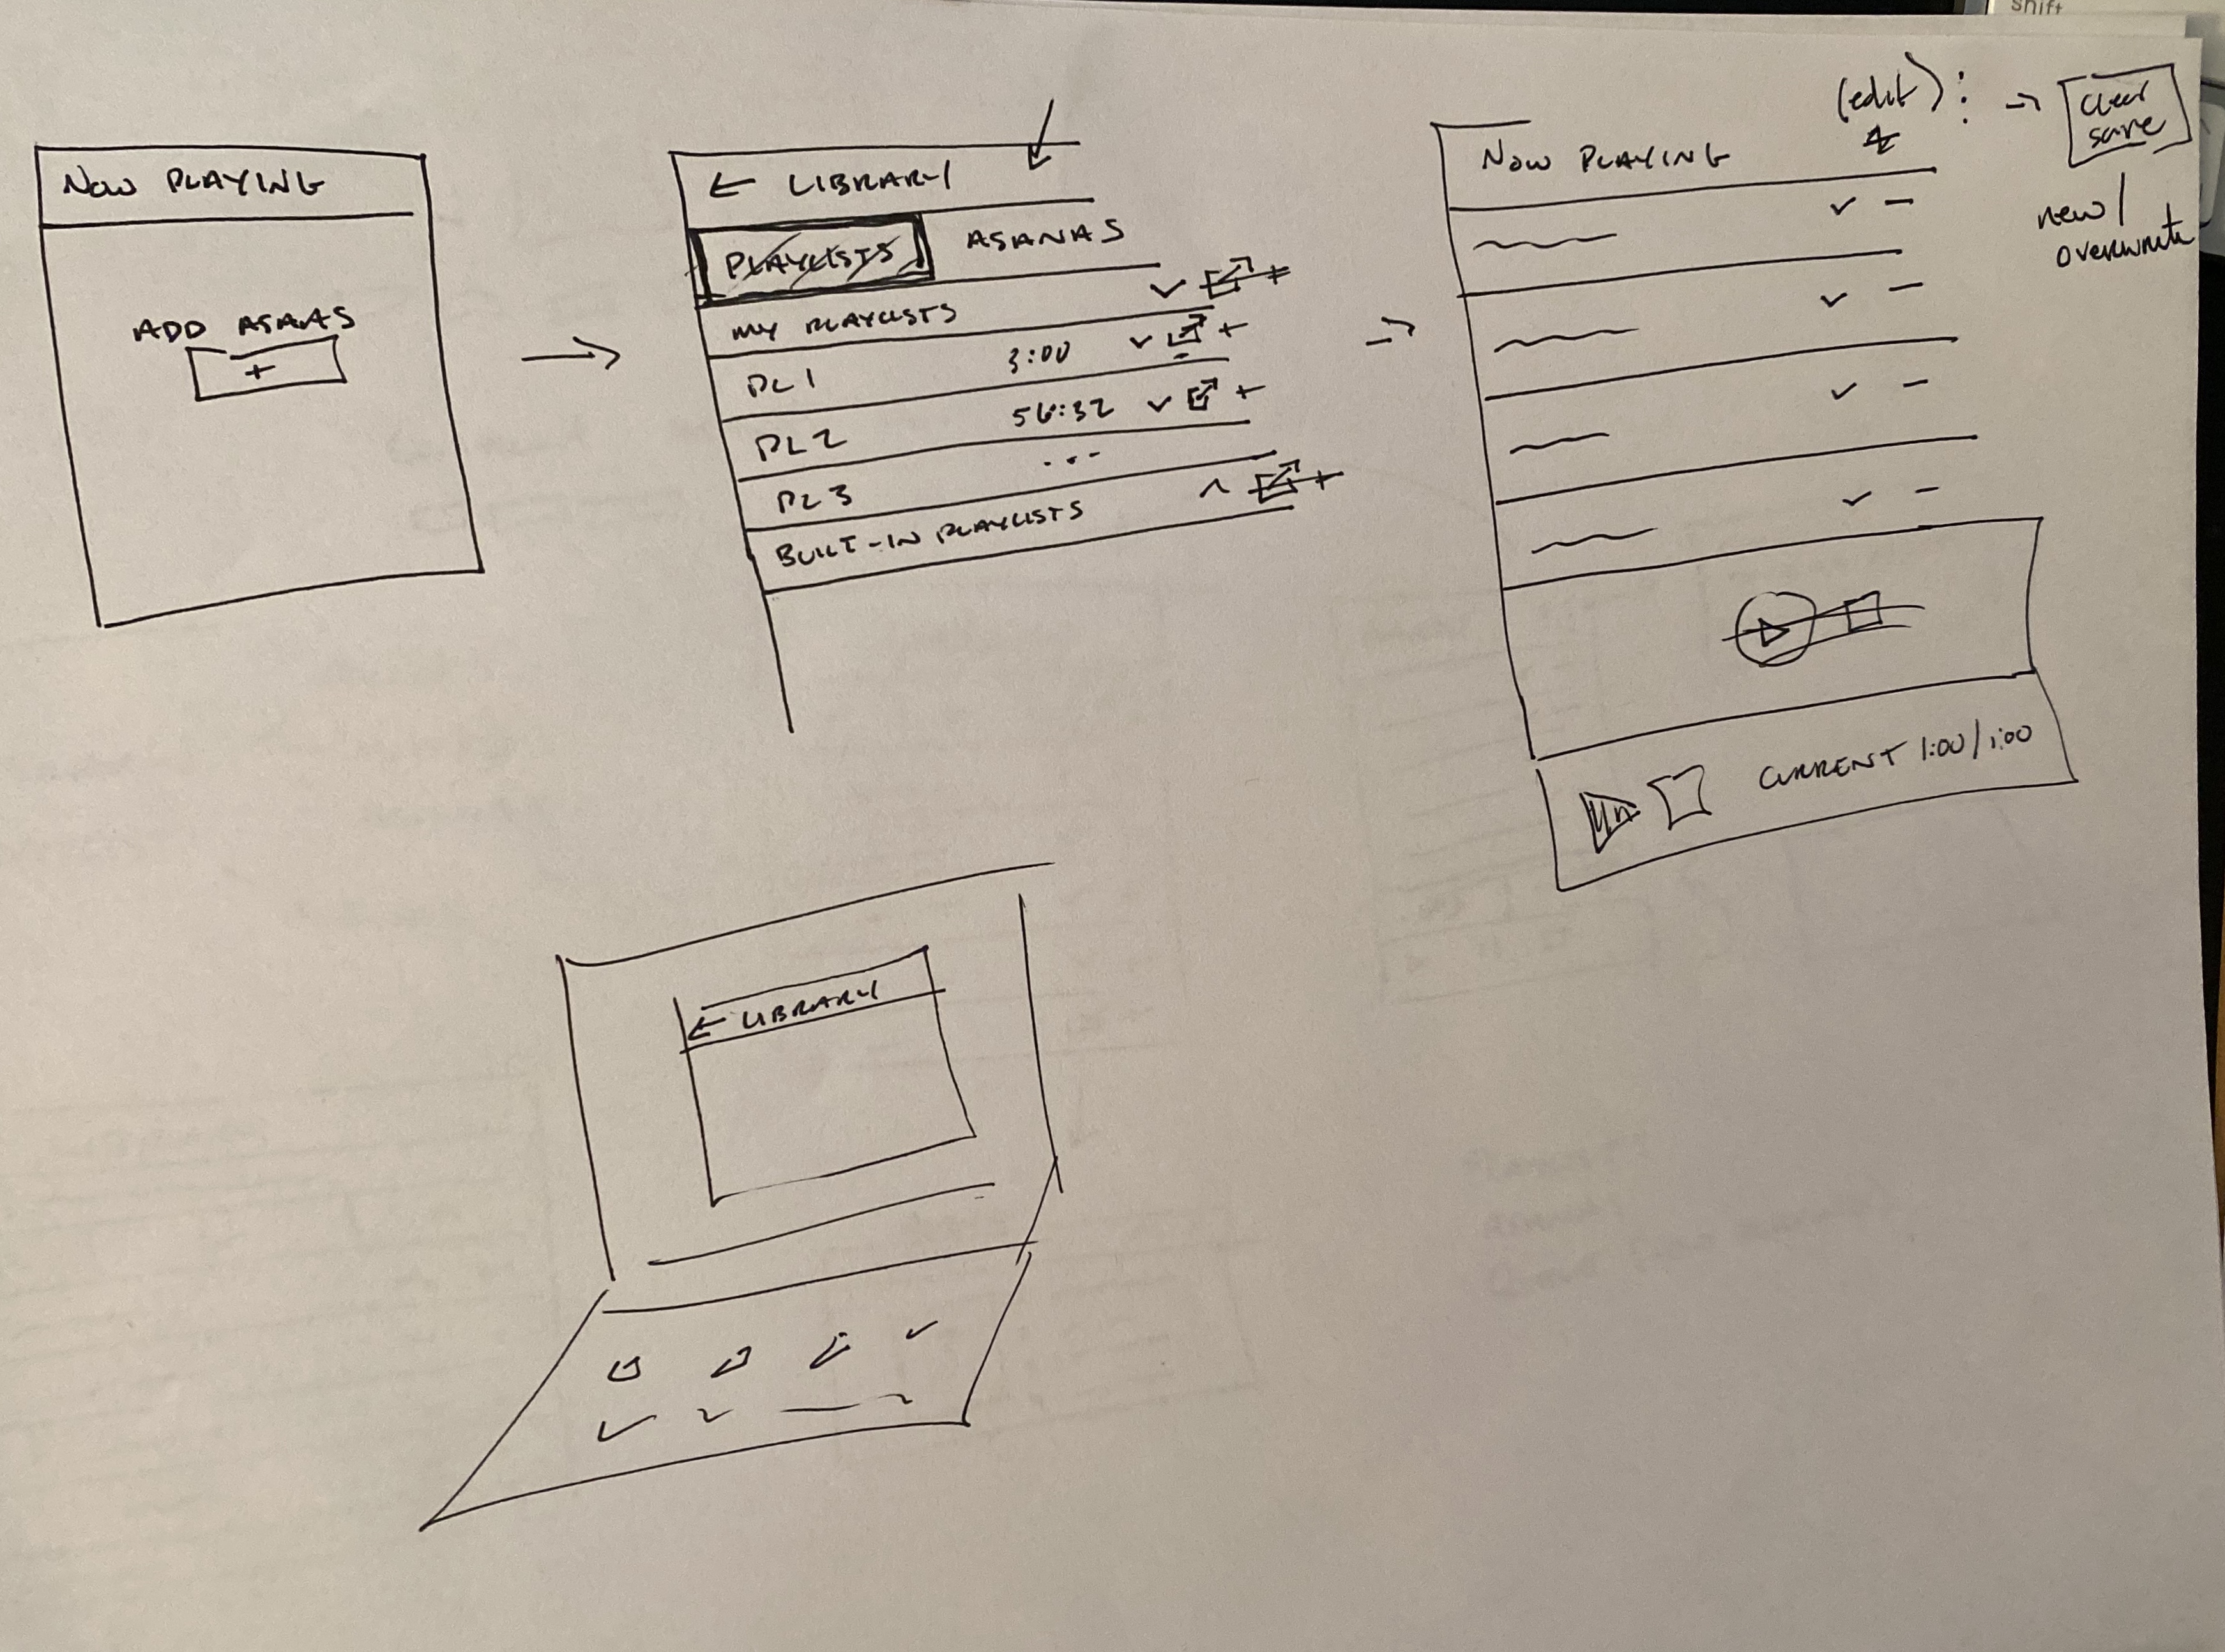 shift
NOW PLAYING
ADD ASANAS
+
← LIBRARY
PLAYLISTS ASANAS
MY PLAYLISTS
PL 1 3:00 +
PL 2 56:32 +
PL 3 ...
BUILT-IN PLAYLISTS +
(edit) : → clear
save
new/
overwrite
NOW PLAYING
CURRENT 1:00/1:00
← LIBRARY